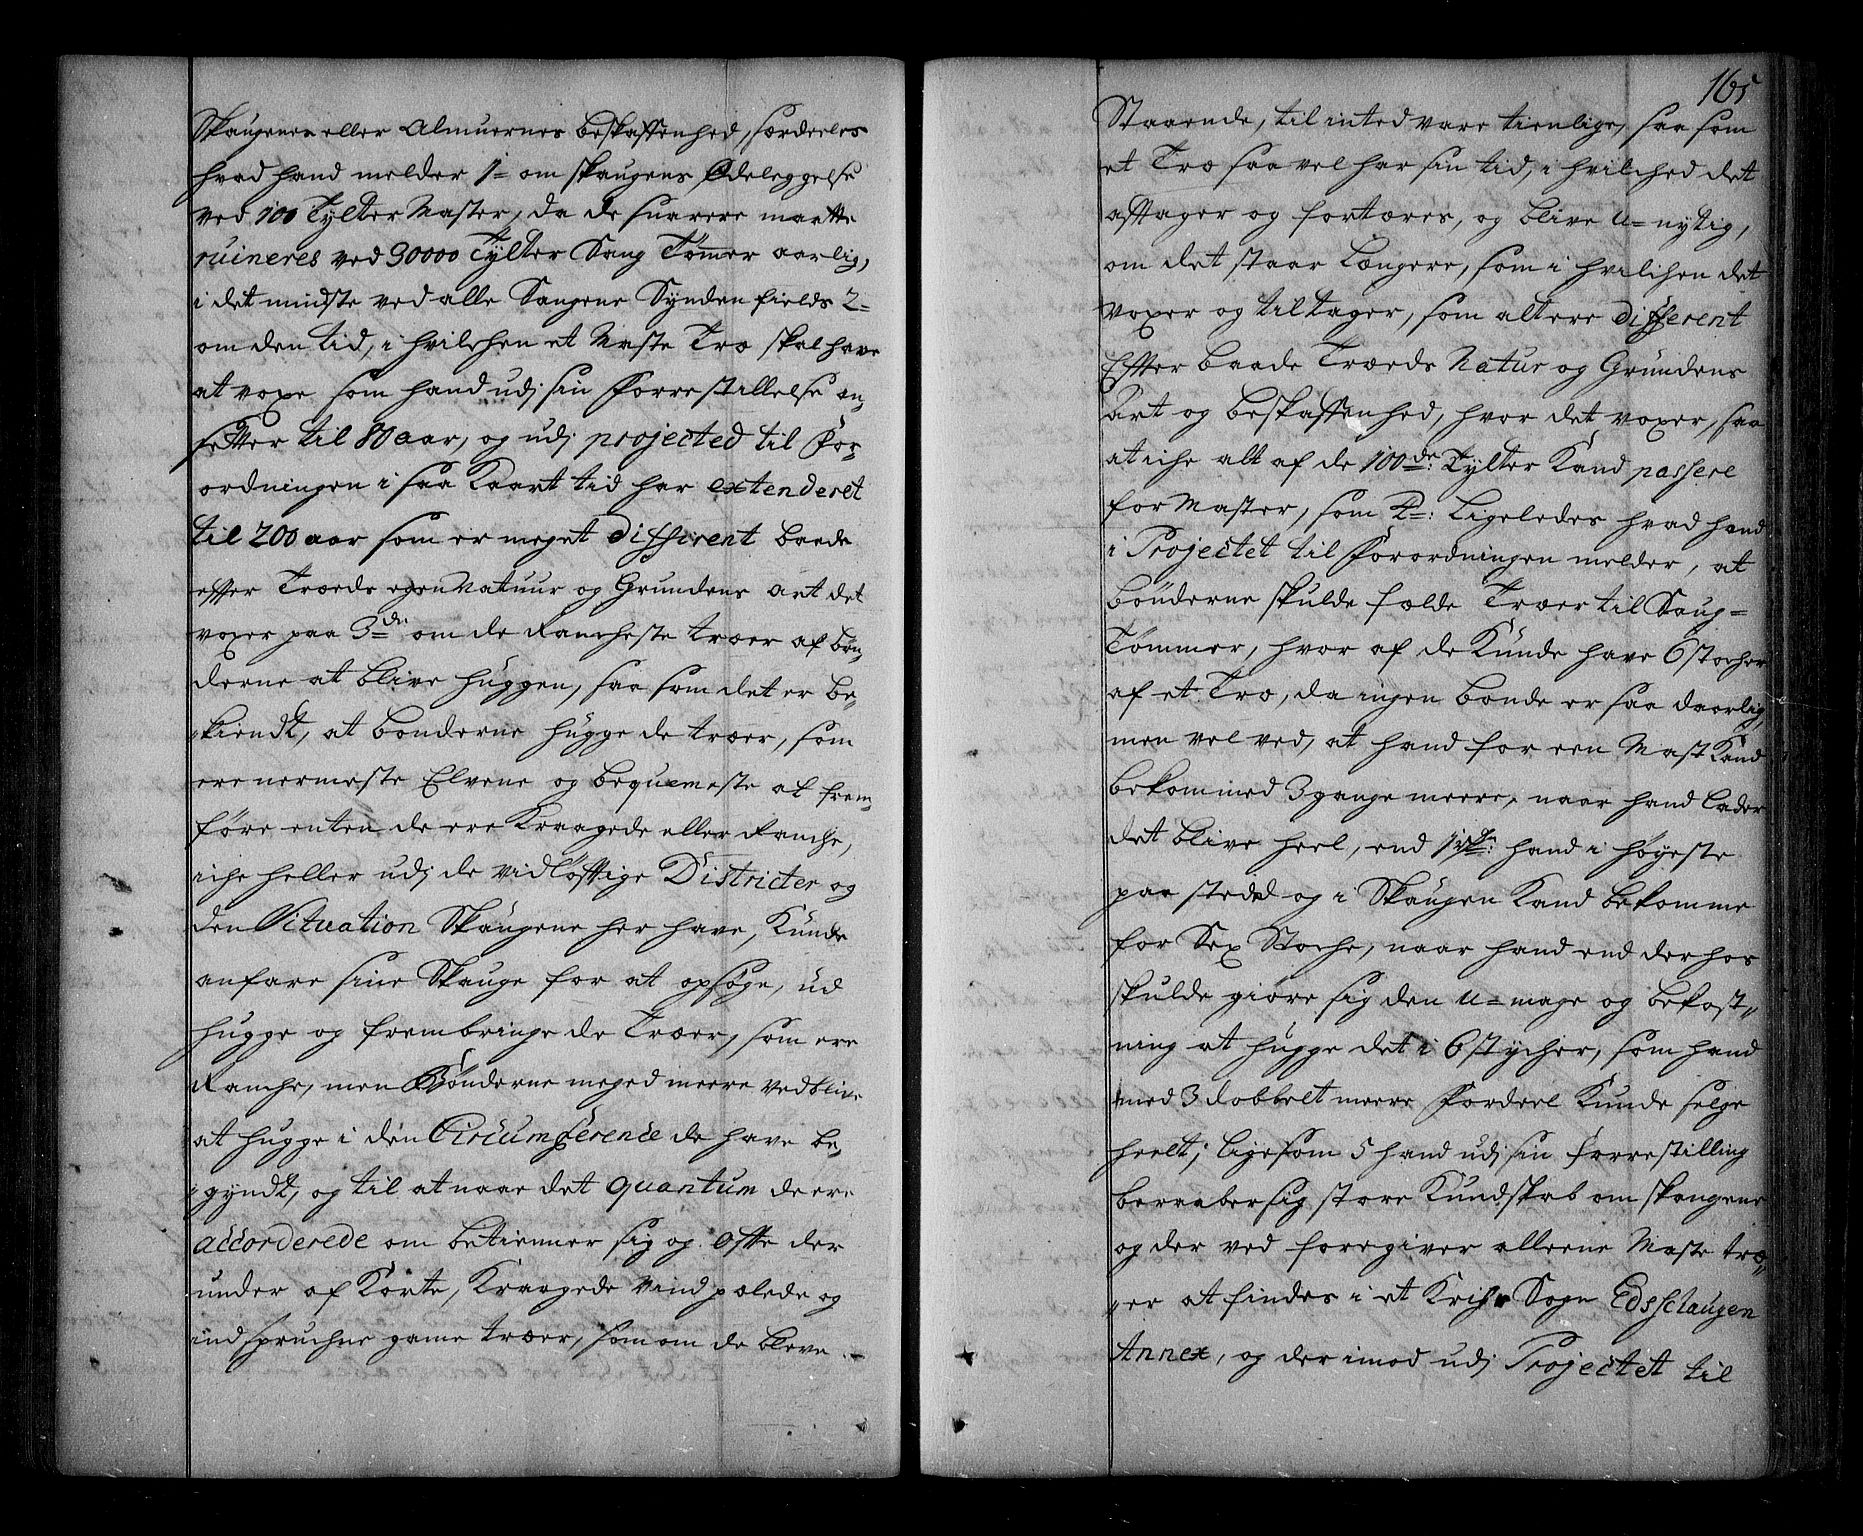 Skaugenes eller Almuernes beskaffenhed, særdeeles
hvad hand melder 1= om skaugens Ødeleggelse
ved 100 Tylter Master, da de snarere maatte
ruineres ved 30000 Tylter Saug Tømer aarlig,
i det mindste ved alle Saugene Synden fields 2=
om den tid, i hvilchen et Maste Træ skal have
at voxe som hand udj sin Forrestillelse an„
setter til 80 aar, og udj projected til For„
ordningen i saa Kaart tid har extenderet
til 200 aar som er meget different baade
effter Træeds egen Natuur og Grundens art det
voxer paa 3de om de Ranckeste træer af bøn„
derne at blive huggen, saa som det er be„
„kiendt, at bonderne hugge de træer, som
ere nermeste Elvene og bequemeste at frem„
føre enten de ere Kraagede eller Ranche,
iche heller udj de vidløfftige Districter og
den Situation Skaugene her have, Kunde
anfare sine Skauge for at opsøge, ud
hugge og frembringe de Træer, som ere
Ranche, men Bønderne meged meere vedblive
at hugge i den Circumference de have be„
„gyndt, og til at naae det quantum de ere
accorderede om betienner sig og offte der
under af Korte, Kraagede vind pælede og
ind spruchne game træer, som om de bleve
165
Staaende, til inted vare tienlige, saa som
et Træ saa vel har sin tid, i hvilched det
afftager og fortæres, og blive u=nytig,
om det staar Længere, som i hvilchen det
voxer og til tager, som alt ere different
Effter baade Træeds Natur og Grundens
art og beskaffenhed, hvor det voxer, saa
at iche alt af de 100de: Tylter Kand passere
for Master, som 4=: Ligeledes hvad hand
i Projectet til Forordningen melder, at
bønderne skulde fælde Træer til Saug=
Tømmer, hvor af de Kunde have 6 stocher
af et Træ, da ingen bonde er saa daarlig,
men vel ved, at hand for een Mast Kand
bekommed 3 gange meere, naar hand lader
det blive heel, end hand i høyeste
paa sted og i Skaugen Kand bekomme
for Sex Stoche, naar hand end der hos
skulde giøre sig den u=mage og bekost„
ning at hugge det i 6 stycher, som hand
med 3 dobbelt meere Fordeel Kunde selge
heelt; ligesom 5 hand udj sin forrestilling
beraaber sig store Kundskab om skaugene
og der ved foregiver alleene Maste træ„
„er at findes i et Sogn Edsschaugen
Annex, og der imod udj Projectet til